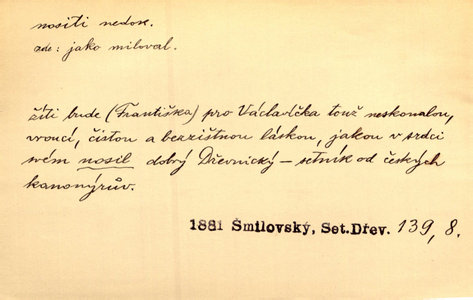 nositi nedok.
zde: jako miloval.
žíti bude (Františka) pro Václavíčka touž neskonalou,
vroucí, čistou a bezzištnou láskou, jakou v srdci
svém nosil dobrý Dřevnický – setník od českých
kanonýrův.
1881 Šmilovský, Set.Dřev. 139, 8.